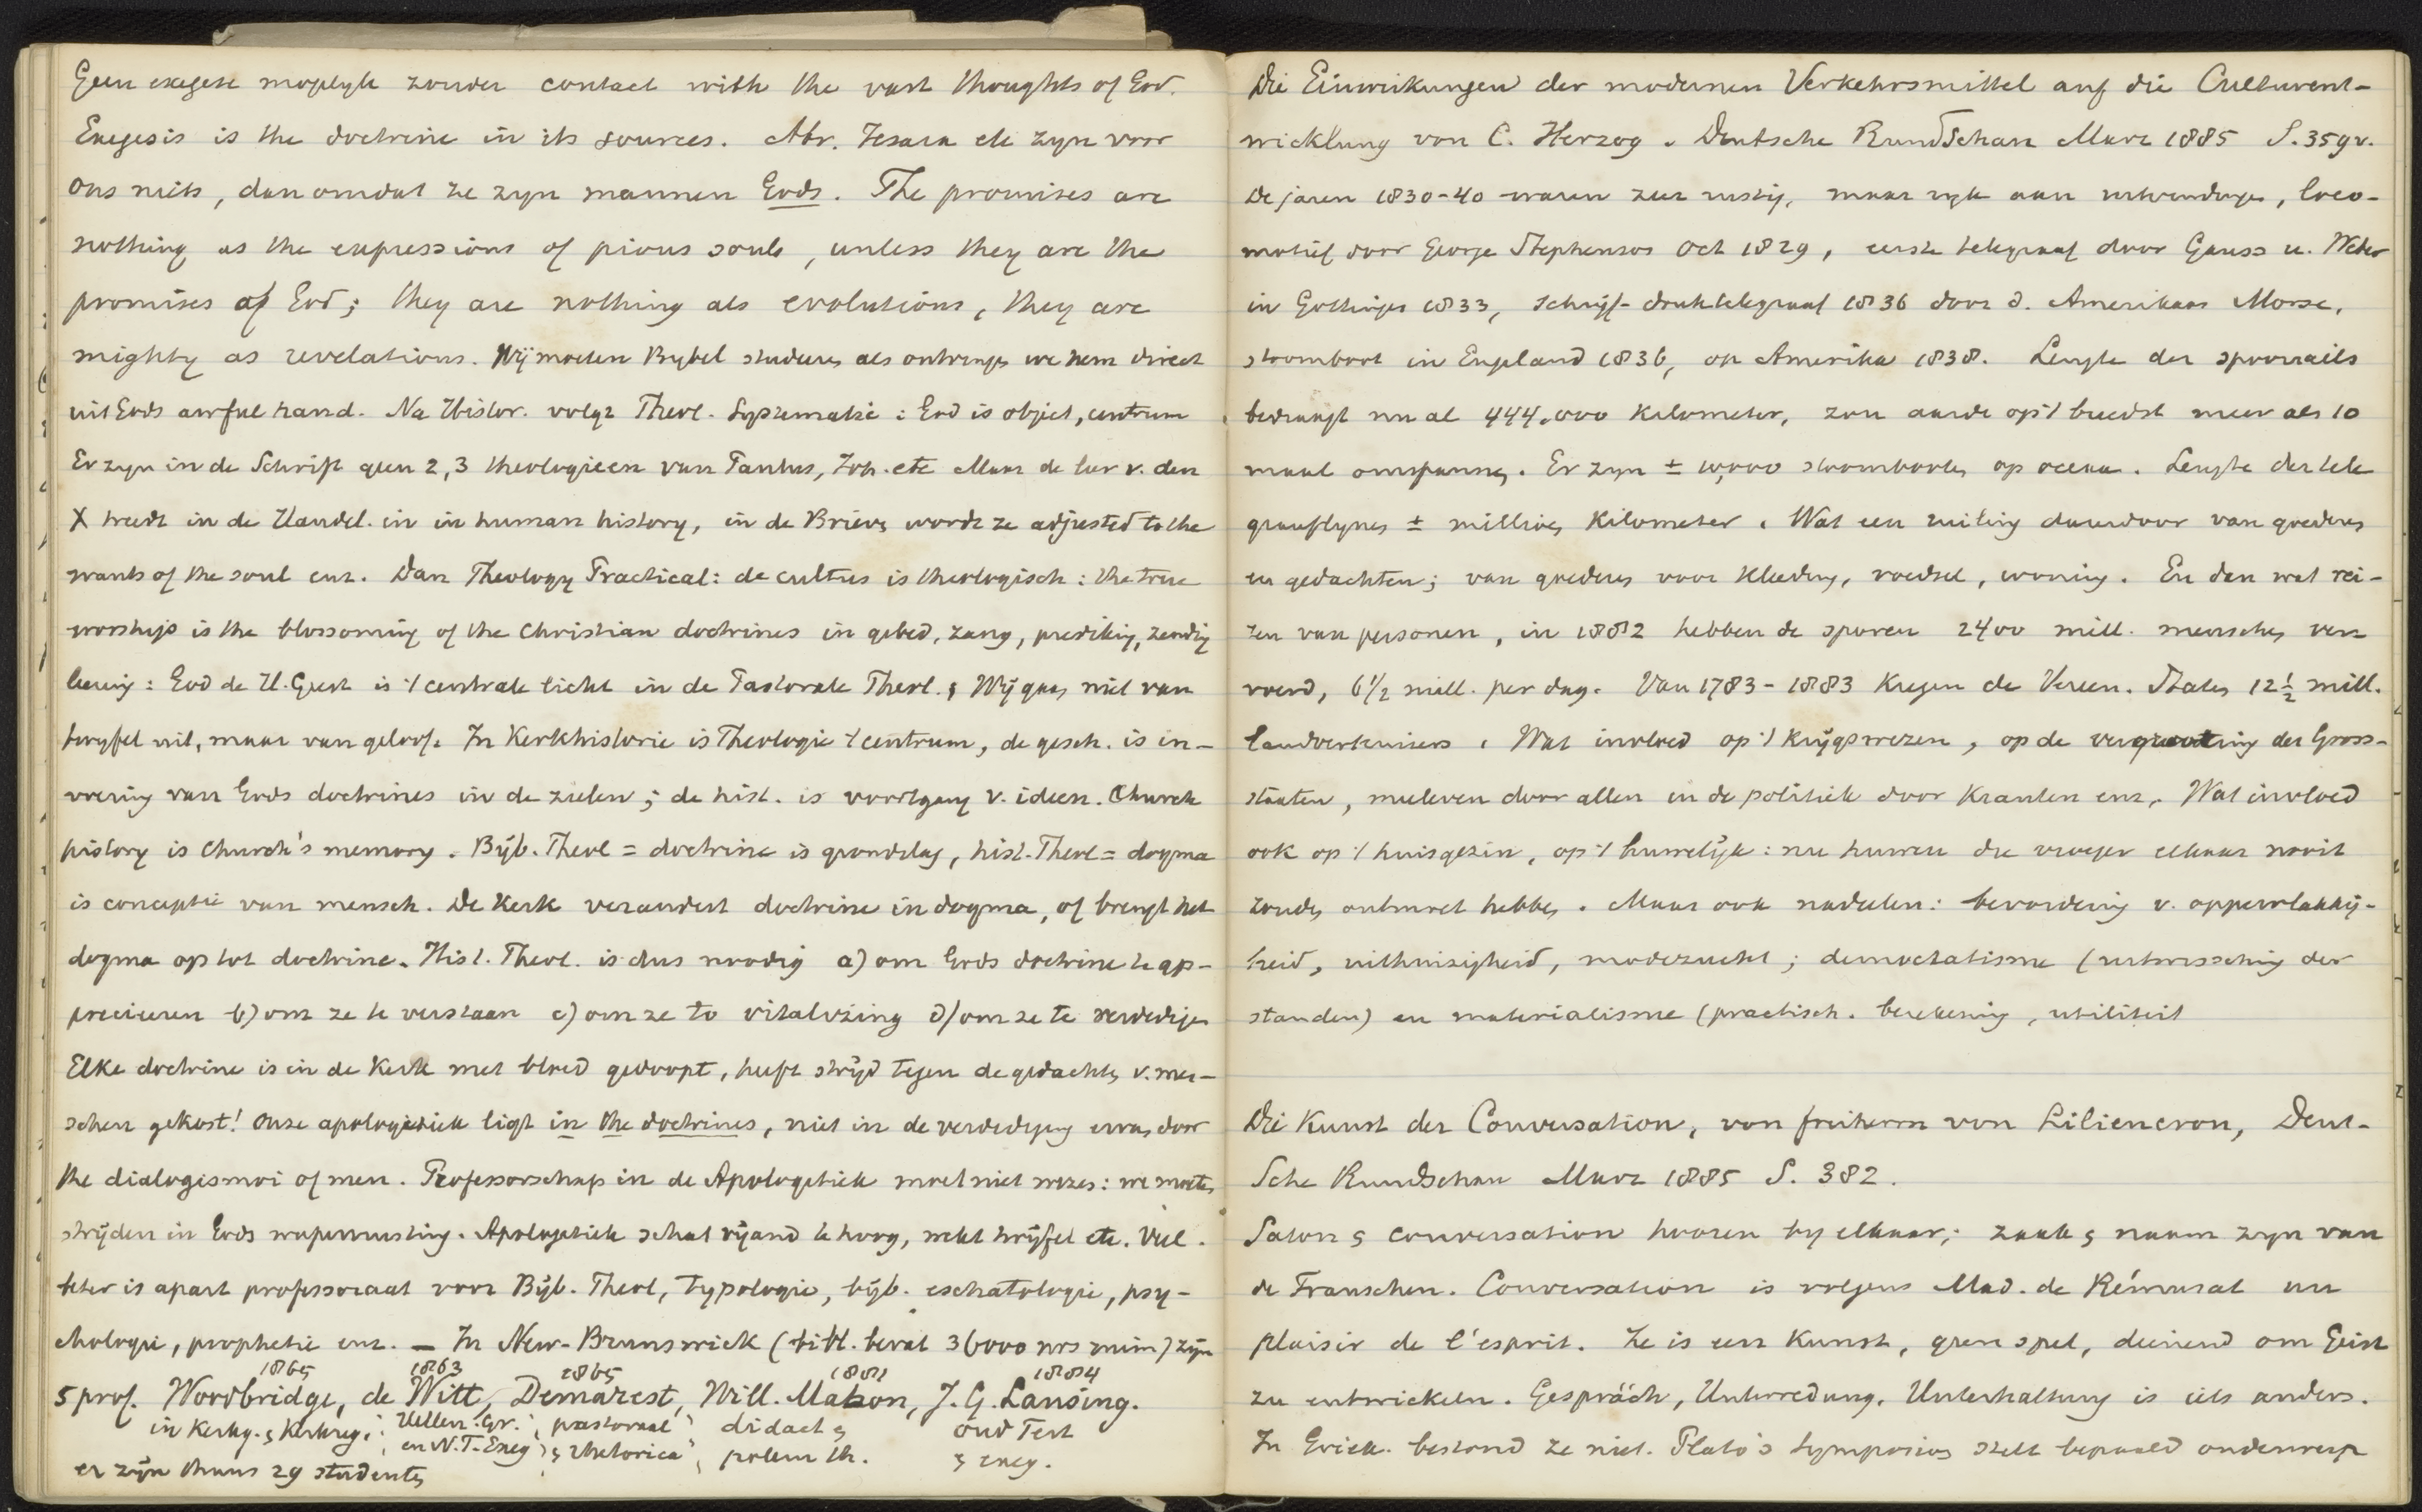 Geen exegese mogelyk zonder contact with the vast thoughts of God.
Exegesis is the doctrine in its sources. Abr. Jesaia etc zyn voor
ons niets, dan omdat ze zyn mannen Gods. The promises are
nothing as the expressions of pious souls, unless they are the
promises of God; they are nothing als evolutions, they are
mighty as revelations. Wij moeten Bybel studeeren als ontvingen we hem direct
uit Gods awful hand. Na Histor. volgt Theol. Systematic: God is object, centrum
Er zyn in de Schrift geen 2, 3 theologieen van Paulus, Joh. etc Maar de leer v. den
X treedt in de Handel. in in human history, in de Brieven wordt ze adjusted to the
wants of the soul enz. Dan Theology Practical: de cultus is theologisch: the true
worship is the blossoming of the Christian doctrines in gebed, zang, prediking, zending
leering: God de H. Geest is 't centrale licht in de Pastorale Theol. & Wij gaan niet van
twyfel uit, maar van geloof. In Kerkhistorie is Theologie 't centrum, de gesch. is in-
voering van Gods doctrines in de zielen; de hist. is voortgang v. ideen. Church
history is Church's memory. Bijb. Theol = doctrine is grondslag, hist. Theol = dogma
is conceptie van mensch. De Kerk verandert doctrine in dogma, of brengt het
dogma op tot doctrine. Hist. Theol. is dus noodig a) om Gods doctrine te ap-
precieeren b) om ze te verstaan c) om ze to vitalizing d) om ze te verdedigen
Elke doctrine is in de Kerk met bloed gedoopt, heeft strijd tegen de gedachten v. men-
schen gekost! Onze apologetiek ligt in the doctrines, niet in de verdediging ervan door
the dialogismoi of men. Professorschap in de Apologetiek moet niet wezen: we moeten
strijden in Gods wapenrusting. Apologetiek schat vijand te hoog, wekt twijfel etc. Veel
beter is apart professoraat voor Bijb. Theol, typologie, bijb. eschatologie, psy-
chologie, prophetie enz. — In New-Brunswick (bibl. bevat 36000 nrs ruim) zijn
1865 1863 1865 1881 1884
5 prof. Woodbridge, de Witt, Demarest, Will. Mabon, J. G. Lansing.
in Kerkg. & Kerkreg; Hellen. Gr.; pastoraal; didact & Oud Test
en N.T. Exeg); & rhetorica; polem th. & exeg.
er zijn thans 29 studenten
Die Einwirkungen der modernen Verkehrsmittel auf die Culturent-
wicklung von C. Herzog. Deutsche Rundschau Marz 1885 S. 359 v.
De jaren 1830-40 waren zeer rustig, maar ryk aan uitvindingen, loco-
motief door George Stephenson Oct 1829, eerste telegraaf door Gauss u. Weber
in Gottingen 1833, schrijf-druktelegraaf 1836 door d. Amerikaan Morse,
stoomboot in Engeland 1836, op Amerika 1838. Lengte der spoorrails
bedraagt nu al 444.000 Kilometer, zou aarde op 't breedst meer als 10
maal omspannen. Er zyn ± 10,000 stoombooten op oceaan. Lengte der tele
graaflynen ± millioen Kilometer. Wat een ruiling daardoor van goederen
en gedachten; van goederen voor kleeding, voedsel, woning. En dan wat rei-
zen van personen, in 1882 hebben de sporen 2400 mill. menschen ver-
voerd, 6 1/2 mill. per dag. Van 1783-1883 kregen de Vereen. Staten 12 1/2 mill.
landverhuizers. Wat invloed op 't krijgswezen, op de vergrooting der Gross-
staaten, meeleven door allen in de politiek door Kranten enz. Wat invloed
ook op 't huisgezin, op 't huwelijk: nu huwen die vroeger elkaar nooit
zouden ontmoet hebben. Maar ook nadeelen: bevordering v. oppervlakkig-
heid, uithuizigheid, modezucht; democratisme (uitwissching der
standen) en materialisme (practisch. berekening, utiliteit
Die Kunst der Conversation, von freiherrn von Liliencron, Deut-
sche Rundschau Marz 1885 S. 382.
Salon & conversation hooren by elkaar; zaak & naam zyn van
de Franschen. Conversation is volgens Mad. de Rémusat un
plaisir de l'esprit. Ze is een Kunst, geen spel, dienend om Geist
zu entwickeln. Gespräch, Unterredung, Unterhaltung is iets anders.
In Griek. bestond ze niet. Plato's Symposion stelt bepaald onderwerp